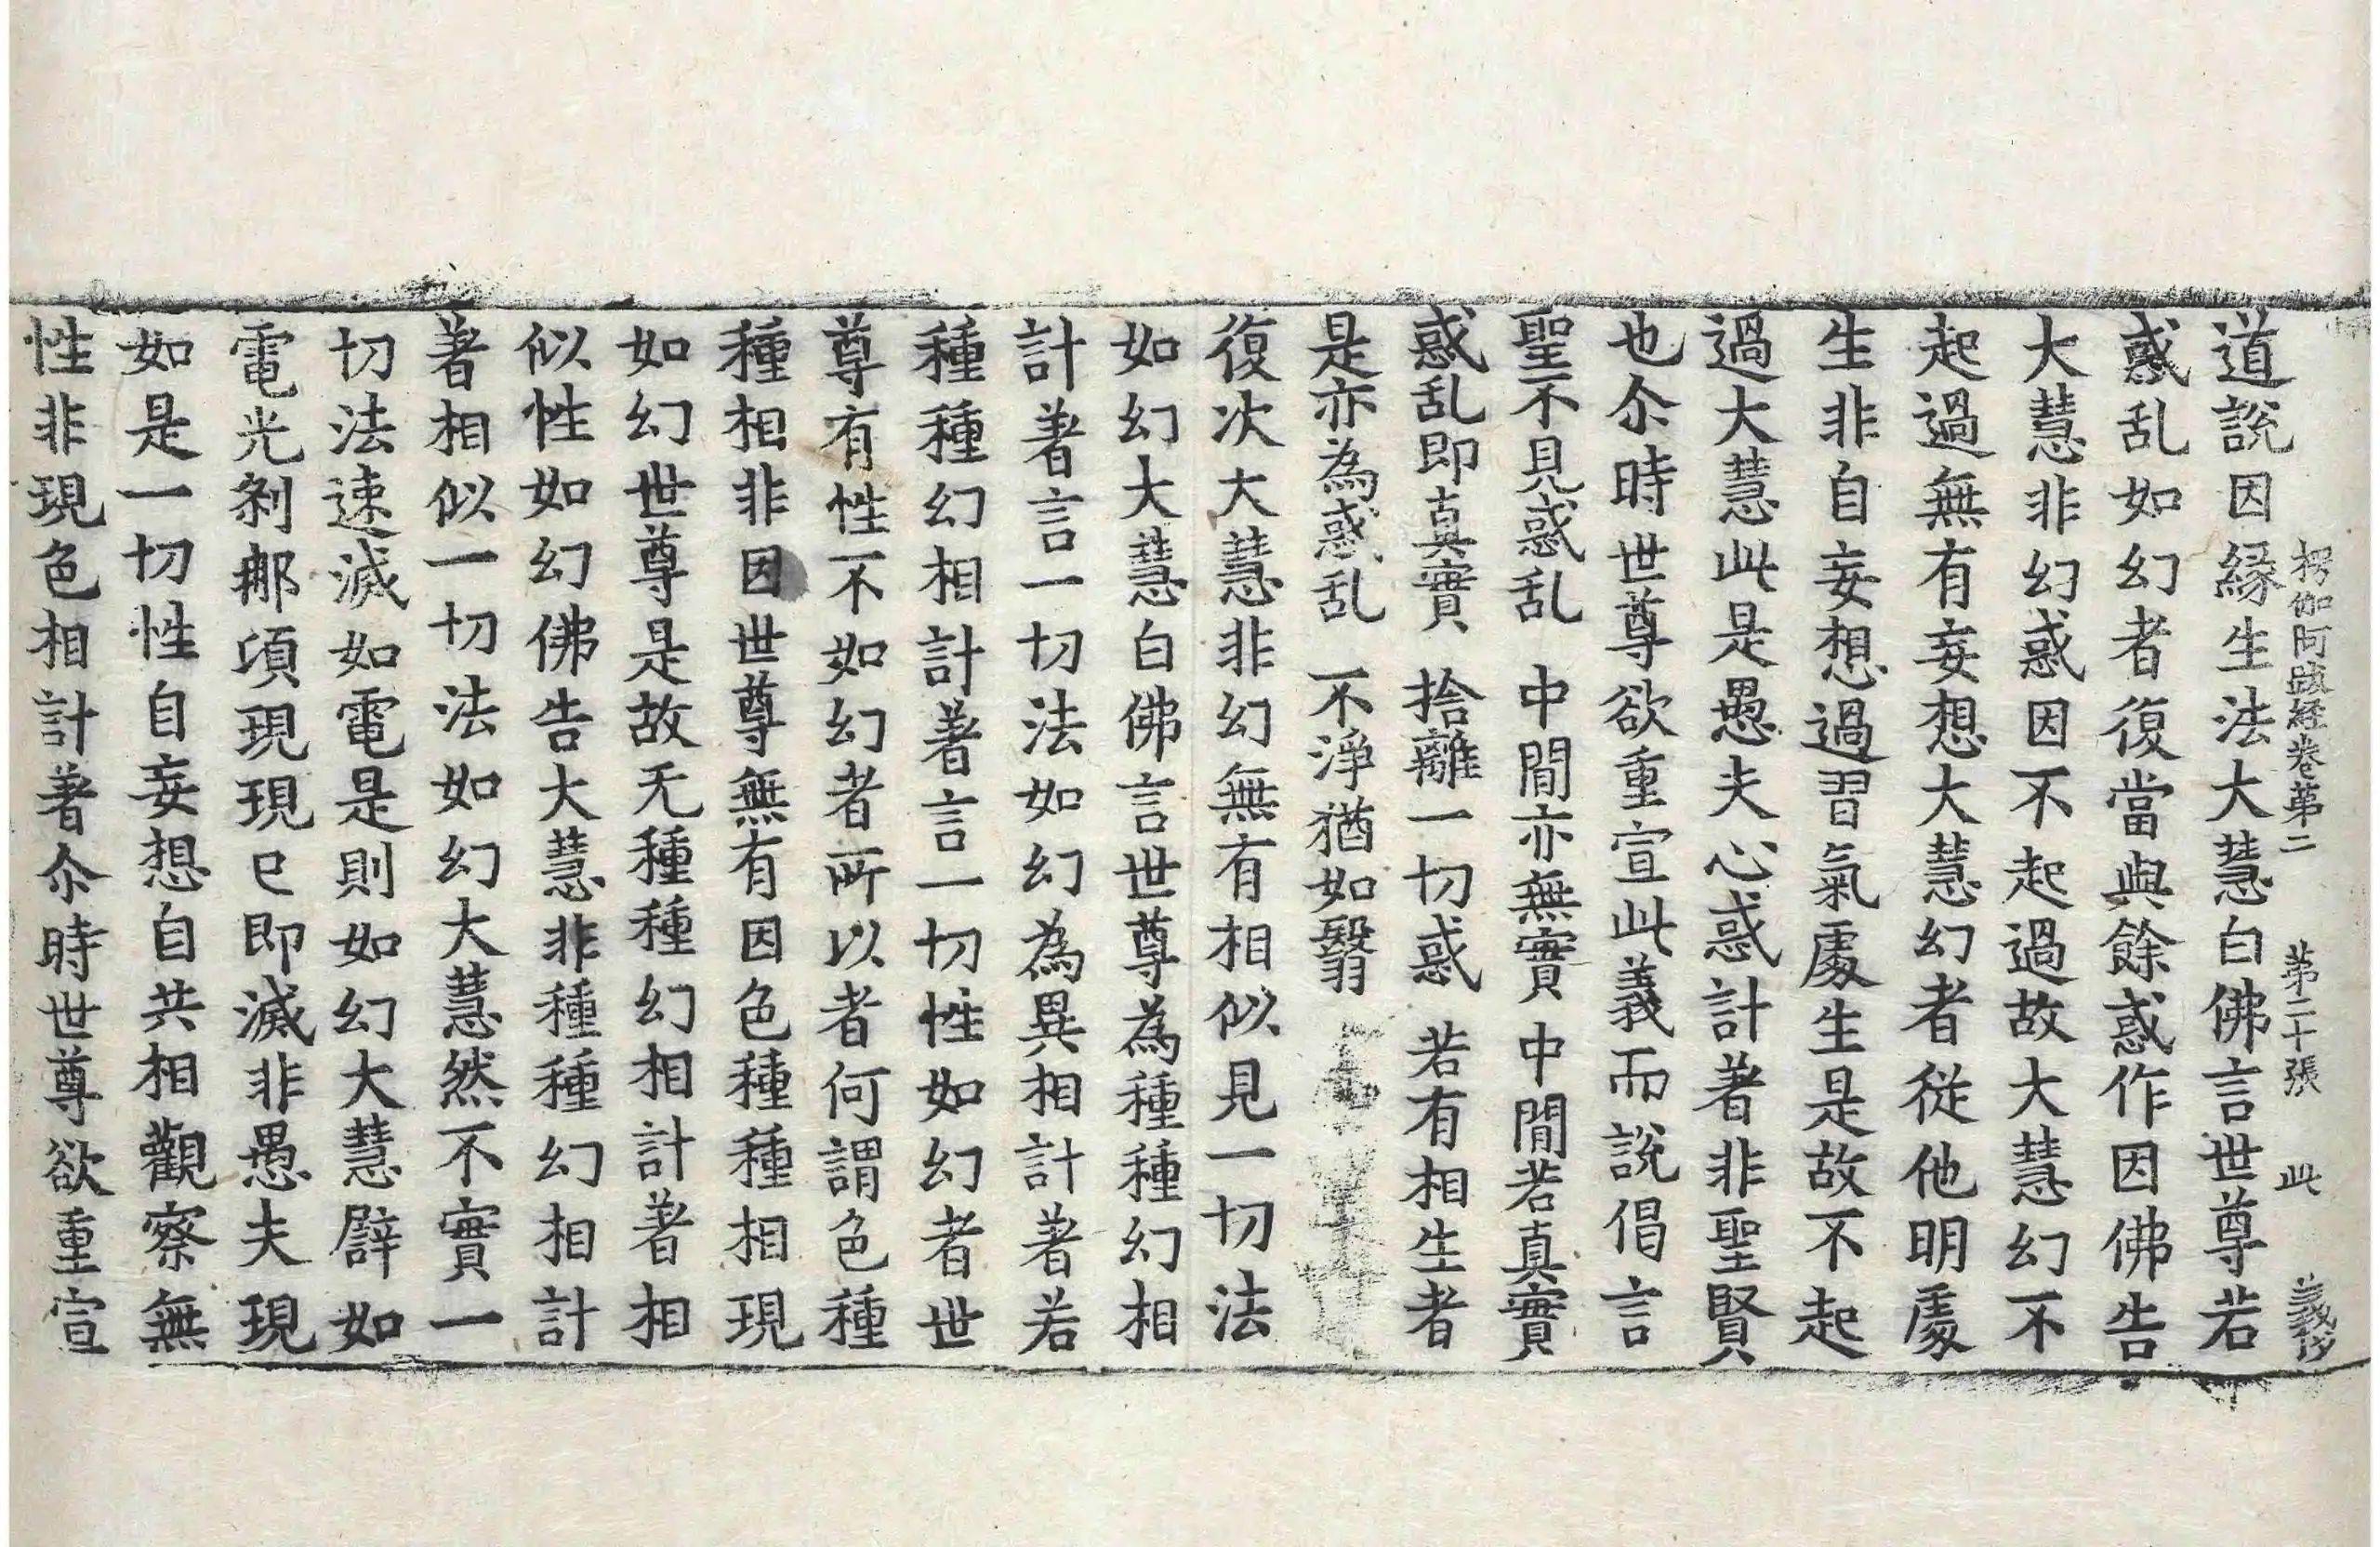 楞伽阿跋経卷第二　第二十張　此
道說因縁生法大慧白佛言世尊若
惑乱如幻者復當與餘惑作因佛告
大慧非幻惑因不起過故大慧幻不
起過無有妄想大慧幻者從他明處
生非自妄想過習氣處生是故不起
過大慧此是愚夫心惑計著非聖賢
也尒時世尊欲重宣此義而說偈言
聖不見惑乱　中間亦無實　中間若真實
惑乱即真實　捨離一切惑　若有相生者
是亦為惑乱　不淨猶如翳
復次大慧非幻無有相似見一切法
如幻大慧白佛言世尊為種種幻相
計著言一切法如幻為異相計著若
種種幻相計著言一切性如幻者世
尊有性不如幻者所以者何謂色種
種相非因世尊無有因色種種相現
如幻世尊是故无種種幻相計著相
似性如幻佛告大慧非種種幻相計
著相似一切法如幻大慧然不實一
切法速滅如電是則如幻大慧譬如
電光剎那頃現現已即滅非愚夫現
如是一切性自妄想自共相觀察無
性非現色相計著尒時世尊欲重宣